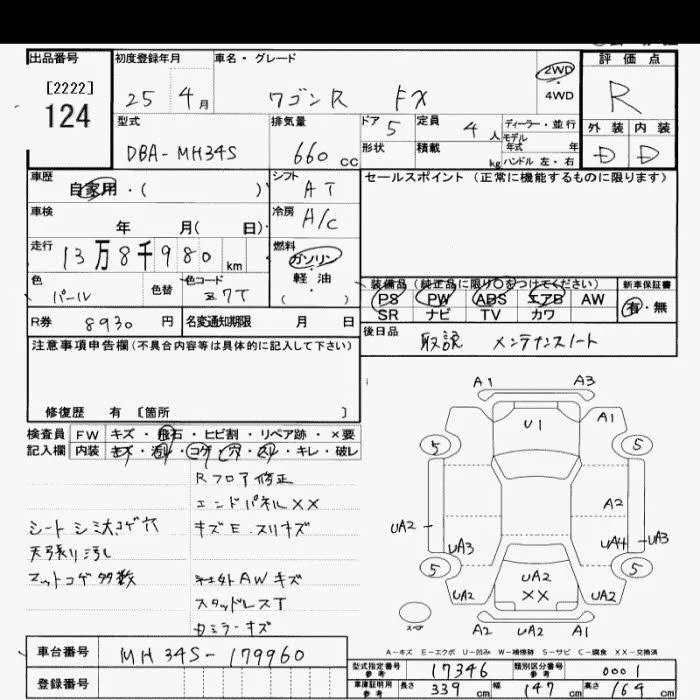 出品番号 初度登録年月 車名・グレード 2WD・4WD 評価点
[2222] 124 25 4月 ワゴンR FX R
型式 排気量 ドア 5 定員 4人 ディーラー・並行 外装 内装
DBA-MH34S 660cc 形状 積載 kg モデル年式 年 ハンドル 左・右 D D
車歴 自家用・( ) シフト AT セールスポイント (正常に機能するものに限ります)
車検 年 月( 日) 冷房 A/C
走行 13万8千980km 燃料 ガソリン・軽油 ( )
色 パール 色替 色コード Z7T 装備品 (純正品に限り○をつけてください) 新車保証書
PS PW ABS エアB AW 有・無
R券 8930円 名変通知期限 月 日 SR ナビ TV カワ
注意事項申告欄(不具合内容等は具体的に記入して下さい) 後日品 取説 メンテナンスノート
修復歴 有 [箇所 ]
検査員 FW キズ・飛石・ヒビ割・リペア跡・×要
記入欄 内装 キズ・汚レ・コゲ・穴・スレ・キレ・破レ
Rフロア修正
エンドパネル××
シート シミ大コゲ穴 キズE.スリキズ
天張り汚レ
マットコゲ多数 AWキズ
スタッドレスT
カミラーキズ
A1 A3
U1 A1
5 5
A2
UA2 UA3 UA4 UA3
5 5
UA2 UA2 ×× UA2
スペア A2 UA2 A1
A-キズ E-エクボ U-凹み W-補修跡 S-サビ C-腐食 ××-交換済
車台番号 MH34S-179960 型式指定番号 参考 17346 類別区分番号 参考 0001
登録番号 車庫証明用 参考 長さ 339cm 幅 147cm 高さ 164cm